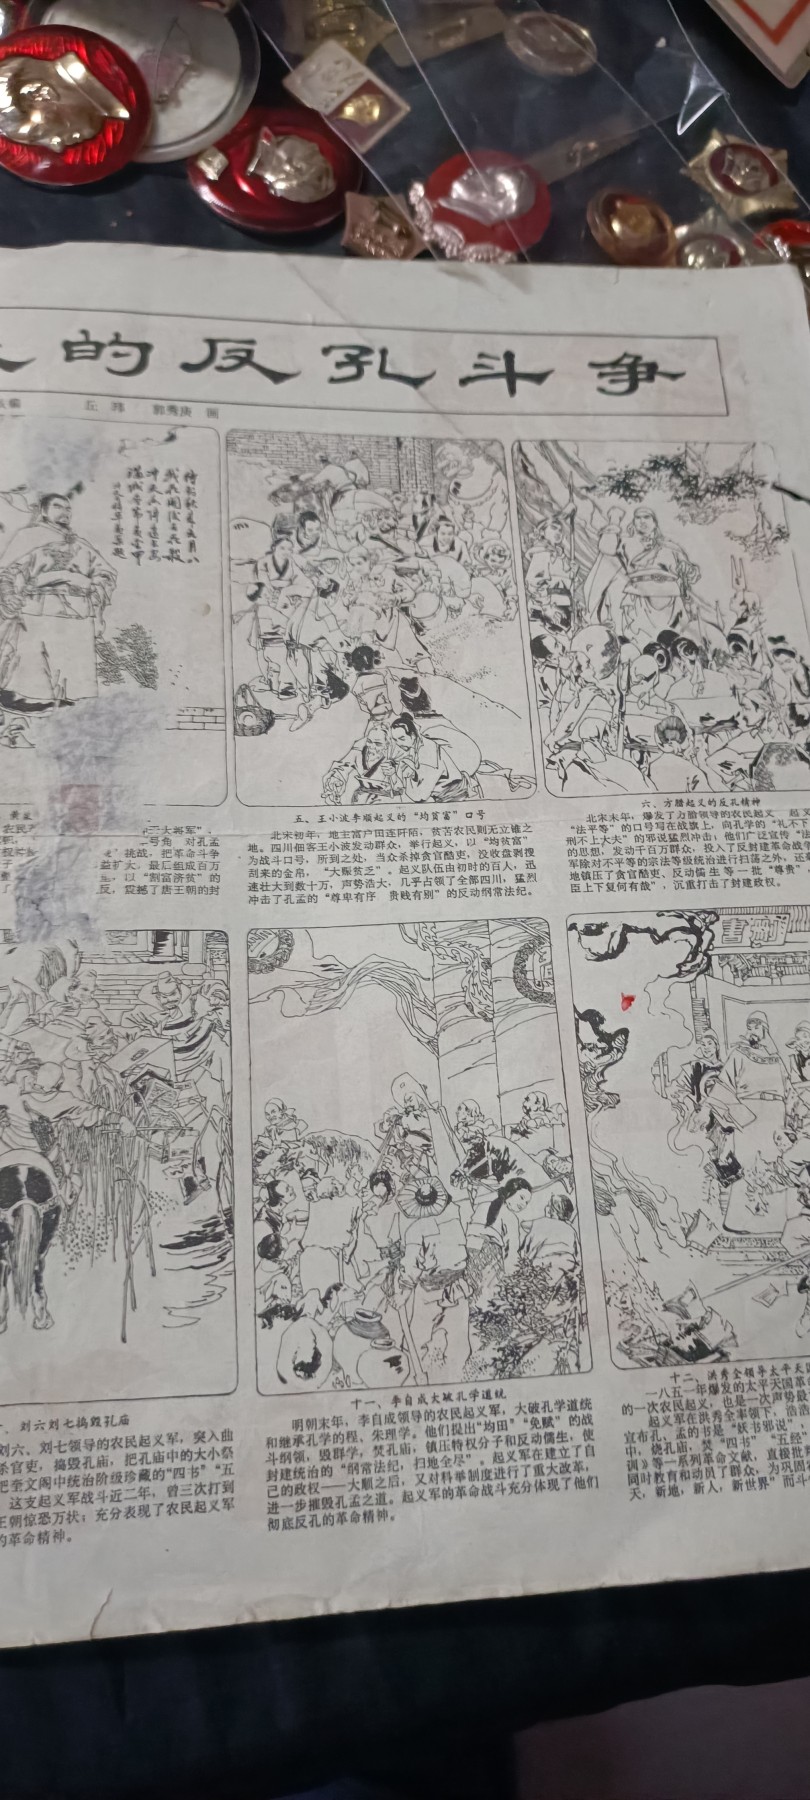 的反孔斗争
丘玮 郭秀庚 画
待到秋来九月八
我花开后百花殺
冲天香阵透长安
满城尽带黄金甲
三大将军”，
号角 对孔孟
挑战，把革命斗争
益扩大，最后组成百万
以“割富济贫”的
反，震撼了唐王朝的封
五、王小波李顺起义的“均贫富”口号
北宋初年，地主富户田连阡陌，贫苦农民则无立锥之
地。四川佃客王小波发动群众，举行起义，以“均贫富”
为战斗口号，所到之处，当众杀掉贪官酷吏，没收盘剥搜
刮来的金帛，“大赈贫乏”。起义队伍由初时的百人，迅
速壮大到数十万，声势浩大，几乎占领了全部四川，猛烈
冲击了孔孟的“尊卑有序 贵贱有别”的反动纲常法纪。
六、方腊起义的反孔精神
北宋末年，爆发了方腊领导的农民起义 起义
“法平等”的口号写在战旗上，向孔学的“礼不下
刑不上大夫”的邪说猛烈冲击，他们广泛宣传“法
的思想，发动千百万群众，投入了反封建革命战争
军除对不平等的宗法等级统治进行扫荡之外，还
地镇压了贪官酷吏、反动儒生等一批“尊贵”，
臣上下复何有哉”，沉重打击了封建政权。
、刘六刘七捣毁孔庙
刘六、刘七领导的农民起义军，突入曲
杀官吏，捣毁孔庙，把孔庙中的大小祭
把奎文阁中统治阶级珍藏的“四书”“五
这支起义军战斗近二年，曾三次打到
王朝惊恐万状；充分表现了农民起义军
的革命精神。
十一、李自成大破孔学道统
明朝末年，李自成领导的农民起义军，大破孔学道统
和继承孔学的程、朱理学。他们提出“均田”“免赋”的战
斗纲领，毁群学，焚孔庙，镇压特权分子和反动儒生，使
封建统治的“纲常法纪，扫地全尽”。起义军在建立了自
己的政权——大顺之后，又对科举制度进行了重大改革，
进一步摧毁孔孟之道。起义军的革命战斗充分体现了他们
彻底反孔的革命精神。
十二、洪秀全领导太平天国
一八五一年爆发的太平天国革
的一次农民起义，也是一次声势最
起义军在洪秀全率领下，浩浩
宣布孔、孟的书是“妖书邪说”，
中，烧孔庙，焚“四书”“五经”
训》等一系列革命文献，直接批
同时教育和动员了群众，为巩固
天，新地，新人，新世界”而斗